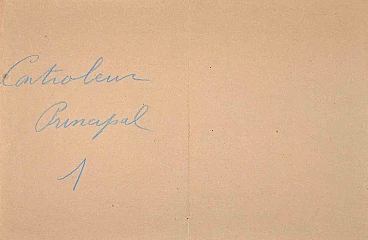 Controleur
Principal
1